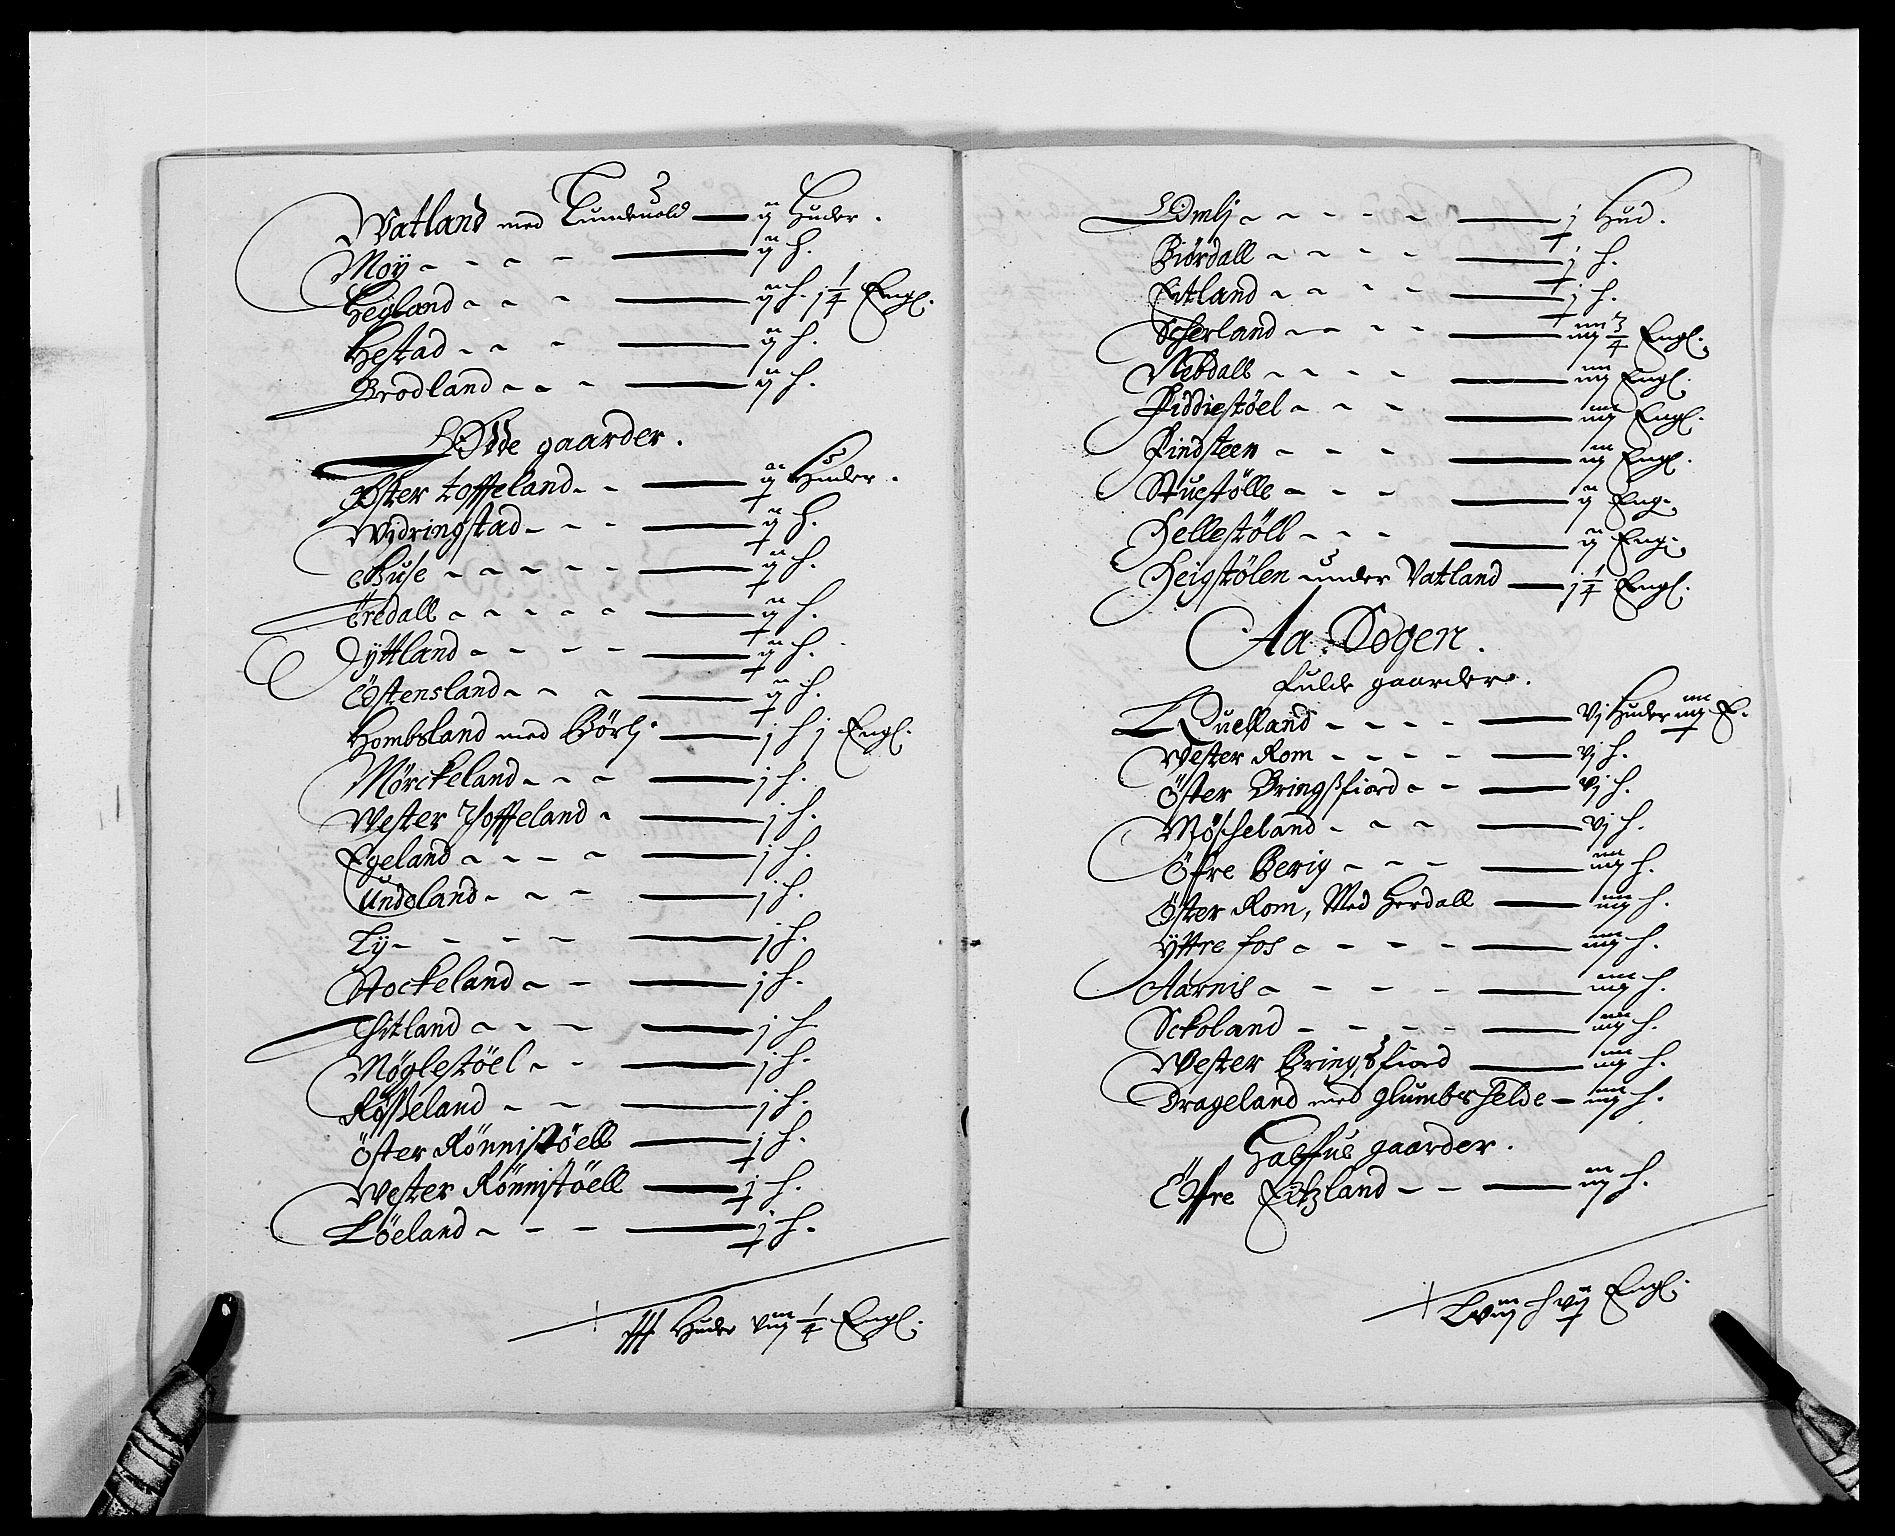 Watland med Lundevold — ij Huder.
Moÿ - - - - — ij h.
Heigland - - - — ij h. j 1/4 Engl.
Hestad - - - — ij h.
Brodland - - - — ij h.
Øde gaarder.
Øster toffeland - - — ij Huder.
Widringstad - - - — ij h.
Huse - - - - - — ij h.
Öredall - - - - - — ij h.
Jyttland - - - - — ij h.
Östensland - - - — ij h.
Hombsland med Börlj — j h j Engl.
Mörckeland - - - — j h.
Wester Toffeland - — j h.
Egeland - - - - — j h.
Undeland - - - — j h.
Lÿ - - - - — j h.
Stockeland - - — j h.
Hitland - - - — j h
Möglestöel - - — j h.
Røsseland - - - — j h.
Öster Rönnistöell — j h.
Wester Rönnistöell — j h.
Löeland - - - — j h.
Huder viij 1/4 Engl.
Ømlj - - - - - — j Hud.
Biördall - - - - — j h.
Eitland - - - - — j h.
Scherland - - - - — iiij 3/4 Engl.
Nebdall - - - - — iiij Engl.
Fiddiestöel - - - — iiij Engl.
Findsteen - - - — iij Engl.
Stuestölle - - - — ij Eng.
Hellestöll - - - — ij Eng.
Heigstölen under Vatland — j 1/4 Engl.
Aa Sogen.
fulde gaarder.
Quelland - - - - — vj Huder iiij E.
Wester Rom - - - - — vj h.
Öster Bringsfiord - - — vj h.
Møscheland - - - — vj h.
Öfre Berig - - - — iiij h.
Øster Rom, Med Herdall — iiij h.
Yttre fos - - - - — iiij h.
Aarnis - - - - — iiij h.
Sckoland - - - - — iiij h.
Wester Bringsfiord — iiij h.
Drageland med glumbsfelde — iiij h.
Halffue gaarder.
Öfre Eitzland - - — iij h.
Lviij h vij Engl.